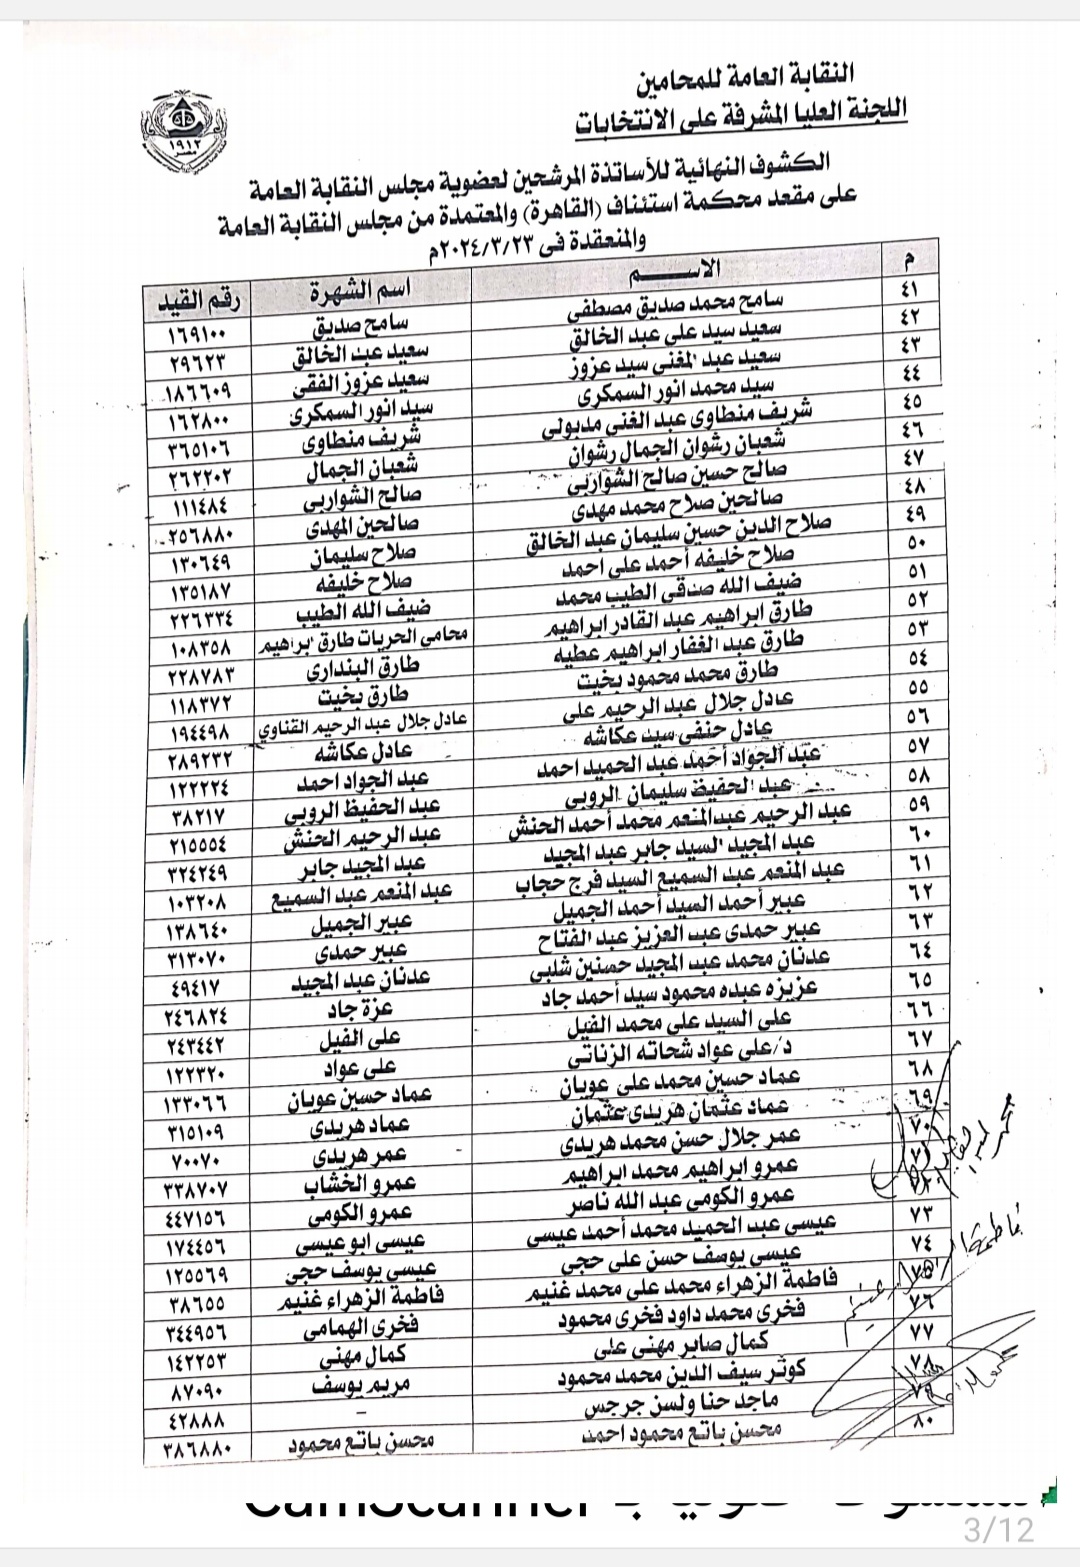 النقابة العامة للمحامين
اللجنة العليا المشرفة على الانتخابات
١٩١٢
مصر
الكشوف النهائية للأساتذة المرشحين لعضوية مجلس النقابة العامة
على مقعد محكمة استئناف (القاهرة) والمعتمدة من مجلس النقابة العامة
والمنعقدة فى ٢٠٢٤/٣/٢٣م
م الاســـــم اسم الشهرة رقم القيد
٤١ سامح محمد صديق مصطفى سامح صديق ١٦٩١٠٠
٤٢ سعيد سيد على عبد الخالق سعيد عبد الخالق ٢٩٦٢٣
٤٣ سعيد عبد المغنى سيد عزوز سعيد عزوز الفقى ١٨٦٦٠٩
٤٤ سيد محمد انور السمكرى سيد انور السمكرى ١٦٢٨٠٠
٤٥ شريف منطاوى عبد الغنى مدبولى شريف منطاوى ٣٦٥١٠٦
٤٦ شعبان رشوان الجمال رشوان شعبان الجمال ٢٦٢٢٠٢
٤٧ صالح حسين صالح الشواربى صالح الشواربى ١١١٤٨٤
٤٨ صالحين صلاح محمد مهدى صالحين المهدى ٢٥٦٨٨٠
٤٩ صلاح الدين حسين سليمان عبد الخالق صلاح سليمان ١٣٠٦٤٩
٥٠ صلاح خليفه أحمد على احمد صلاح خليفه ١٣٥١٨٧
٥١ ضيف الله صدقى الطيب محمد ضيف الله الطيب ٢٢٦٣٣٤
٥٢ طارق ابراهيم عبد القادر ابراهيم محامى الحريات طارق ابراهيم ١٠٨٣٥٨
٥٣ طارق عبد الغفار ابراهيم عطيه طارق البندارى ٢٢٨٧٨٣
٥٤ طارق محمد محمود بخيت طارق بخيت ١١٨٣٧٢
٥٥ عادل جلال عبد الرحيم على عادل جلال عبد الرحيم القناوي ١٩٤٤٩٨
٥٦ عادل حنفى سيد عكاشه عادل عكاشه ٢٨٩٢٣٢
٥٧ عبد الجواد أحمد عبد الحميد احمد عبد الجواد احمد ١٢٢٢٢٤
٥٨ عبد الحفيظ سليمان الروبى عبد الحفيظ الروبى ٣٨٢١٧
٥٩ عبد الرحيم عبدالمنعم محمد أحمد الحنش عبد الرحيم الحنش ٢١٥٥٥٤
٦٠ عبد المجيد السيد جابر عبد المجيد عبد المجيد جابر ٣٢٤٢٤٩
٦١ عبد المنعم عبد السميع السيد فرج حجاب عبد المنعم عبد السميع ١٠٣٢٠٨
٦٢ عبير أحمد السيد أحمد الجميل عبير الجميل ١٣٨٦٤٠
٦٣ عبير حمدى عبد العزيز عبد الفتاح عبير حمدى ٣١٣٠٧٠
٦٤ عدنان محمد عبد المجيد حسنين شلبى عدنان عبد المجيد ٤٩٤١٧
٦٥ عزيزه عبده محمود سيد أحمد جاد عزة جاد ٢٤٦٨٢٤
٦٦ على السيد على محمد الفيل على الفيل ٢٤٣٤٤٢
٦٧ د/على عواد شحاته الزناتى على عواد ١٢٢٣٢٠
٦٨ عماد حسين محمد على عوبان عماد حسين عوبان ١٣٣٠٦٦
٦٩ عماد عثمان هريدى عثمان عماد هريدى ٣١٥١٠٩
٧٠ عمر جلال حسن محمد هريدى عمر هريدى ٧٠٠٧٠
٧١ عمرو ابراهيم محمد ابراهيم عمرو الخشاب ٣٣٨٧٠٧
٧٢ عمرو الكومى عبد الله ناصر عمرو الكومى ٤٤٧١٥٦
٧٣ عيسى عبد الحميد محمد أحمد عيسى عيسى ابو عيسى ١٧٤٤٥٦
٧٤ عيسى يوسف حسن على حجى عيسى يوسف حجى ١٢٥٥٦٩
٧٥ فاطمة الزهراء محمد على محمد غنيم فاطمة الزهراء غنيم ٣٨٦٥٥
٧٦ فخرى محمد داود فخرى محمود فخرى الهمامى ٣٤٤٩٥٦
٧٧ كمال صابر مهنى على كمال مهنى ١٤٢٢٥٣
٧٨ كوثر سيف الدين محمد محمود مريم يوسف ٨٧٠٩٠
٧٩ ماجد حنا ولسن جرجس – ٤٢٨٨٨
٨٠ محسن باتع محمود احمد محسن باتع محمود ٣٨٦٨٨٠
فاطمة
CamScanner
3/12